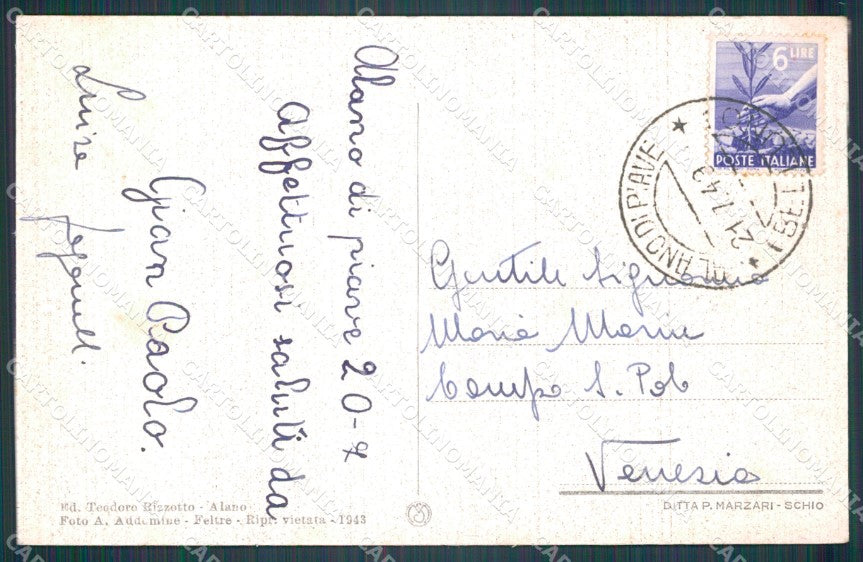 Alano di piave 20-7
Affettuosi saluti da
Gian Paolo.
Luisa
6 LIRE
POSTE ITALIANE
ALANO DI PIAVE
21.7.49
Gentile Signorina
Maria
Campo S. Polo
Venezia
Ed. Teodoro Rizzotto - Alano
Foto A. Addomine - Feltre - Ripr. vietata - 1943
DITTA P. MARZARI - SCHIO
CARTOLINOMANIA